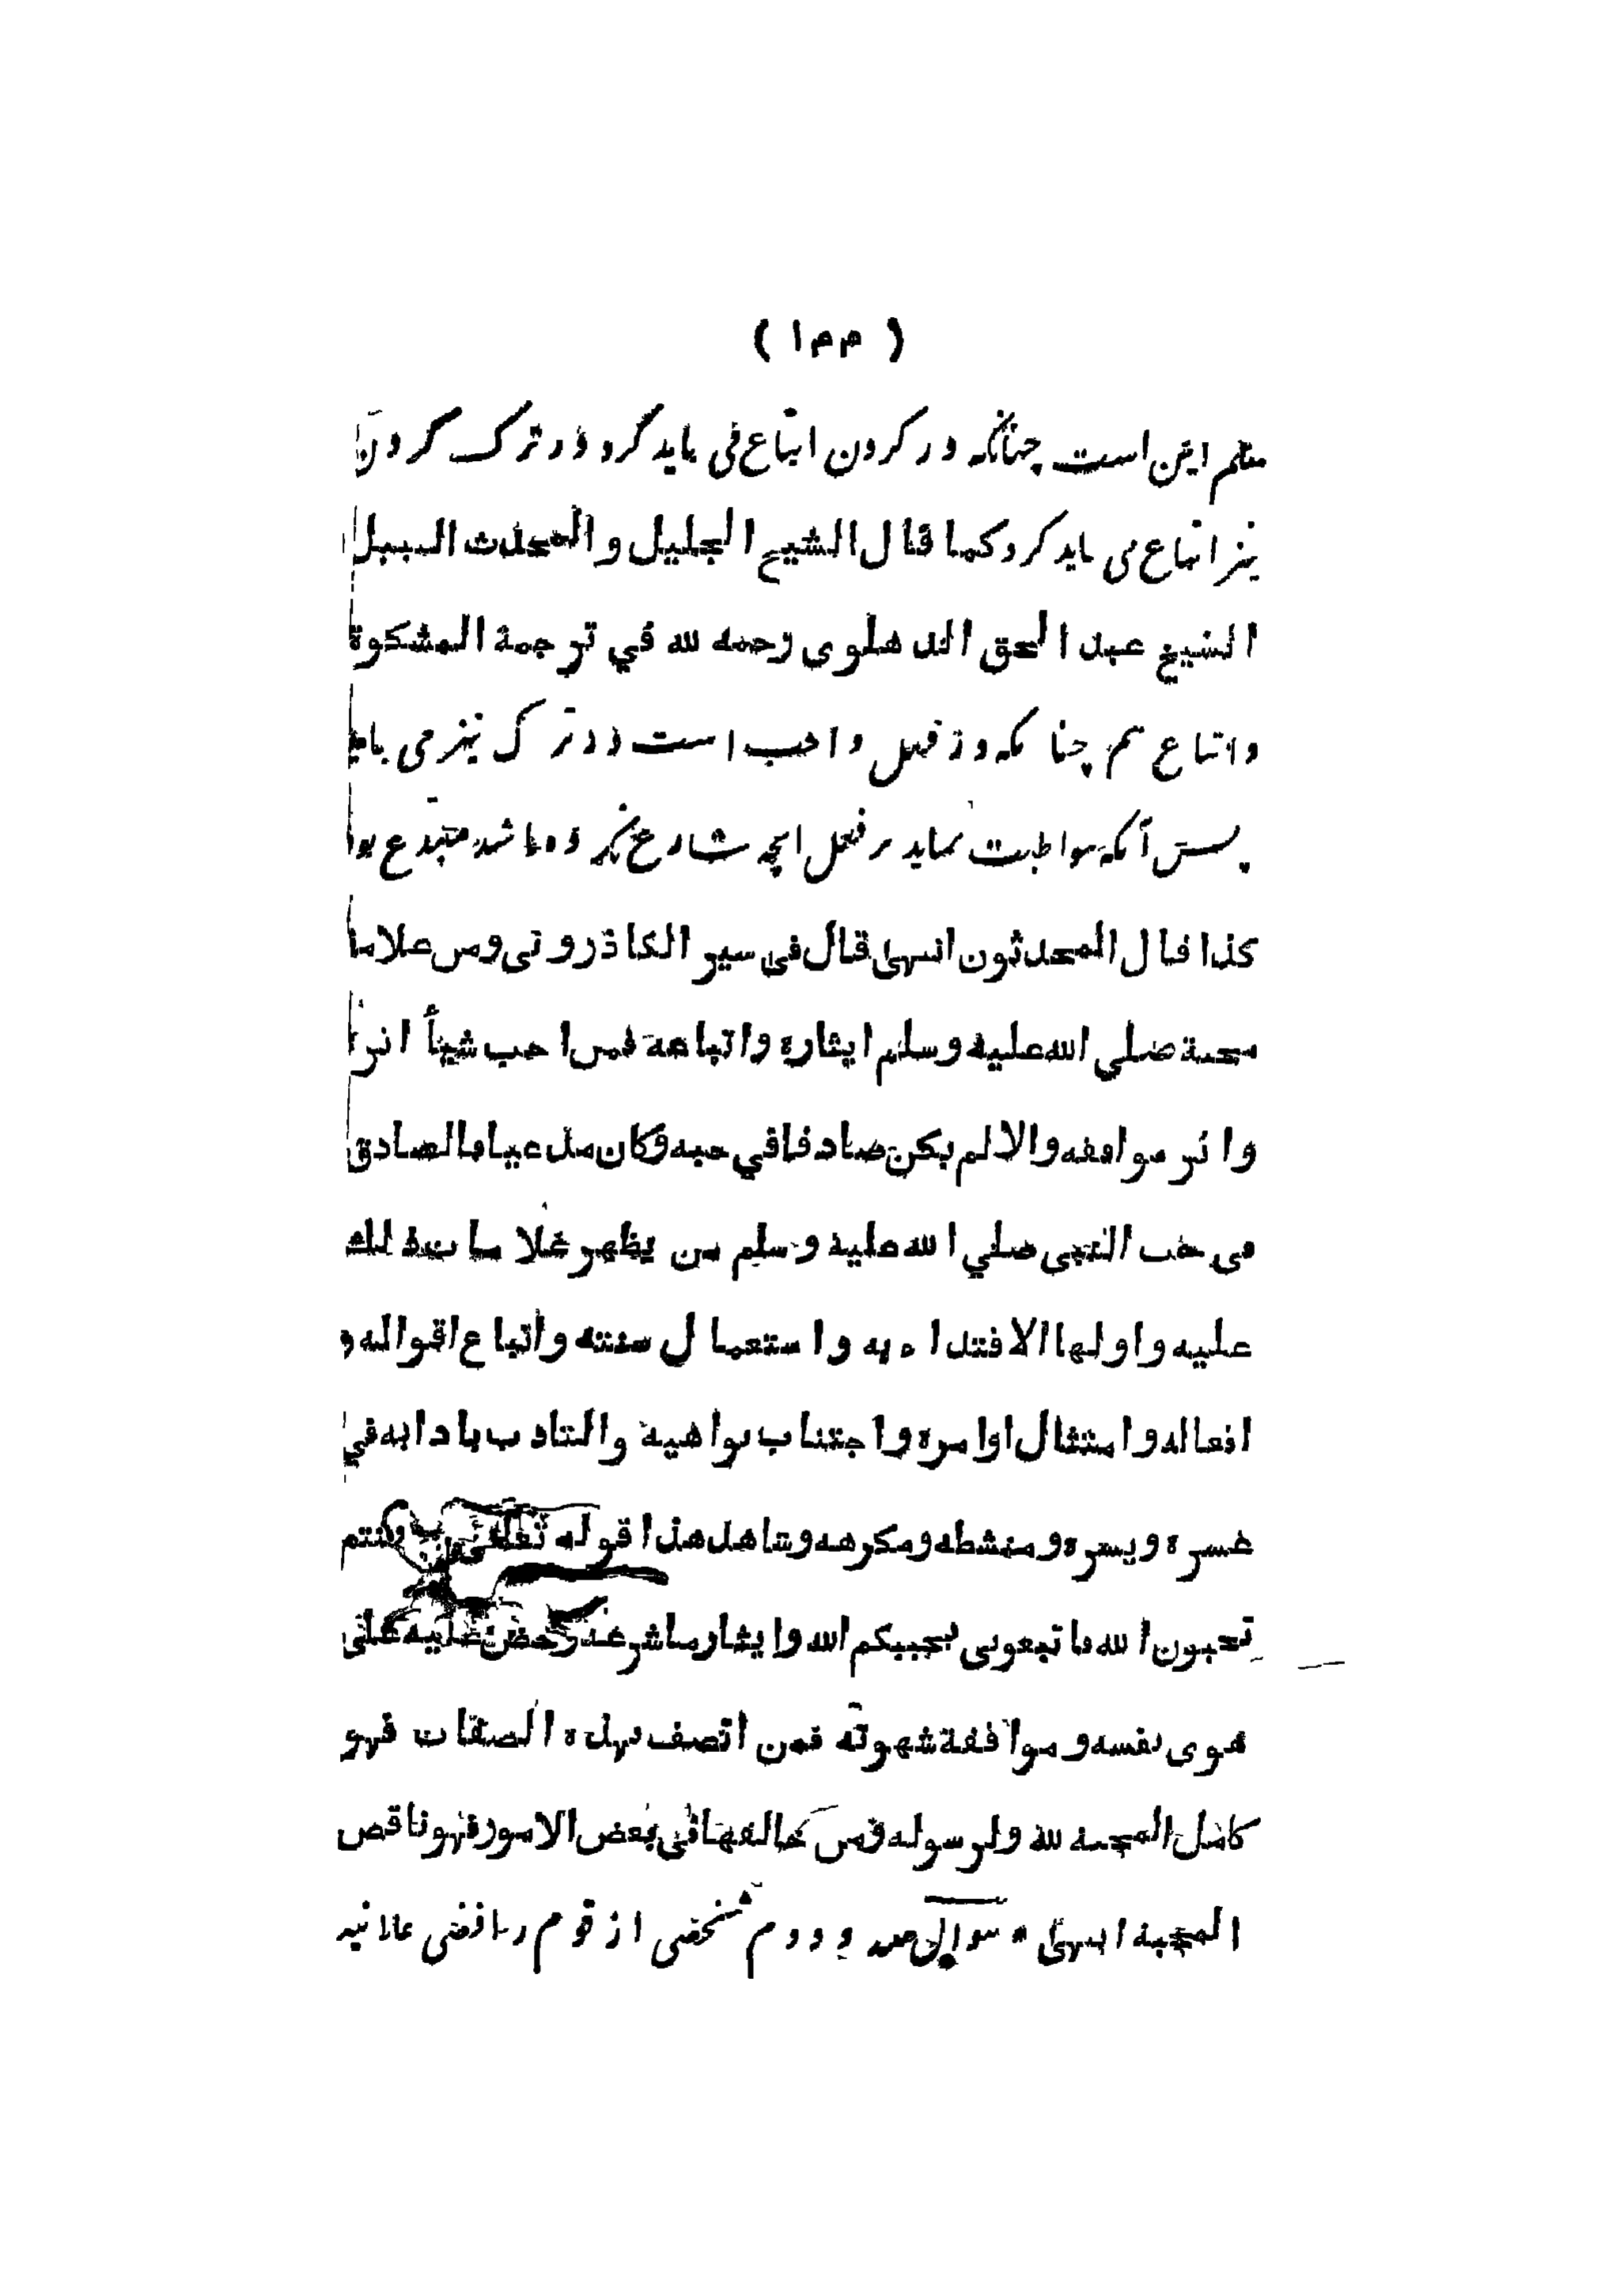 ( ۱۴۴ )
هم این است چنانکه در کردن اتباع می باید کرد در ترک کردن
نیز اتباع می باید کرد کما قال الشیخ الجلیل والمحدث النبیل
الشیخ عبد الحق الدهلوی رحمه لله في ترجمة المشکوة
و اتباع هم چنانکه در فعل واجب است در ترک نیز می باید
پس آنکه مواظبت نماید بر فعل انچه شارع نکرده باشد مبتدع بود
کذا قال المحدثون انتهی قال فی سیر الکاذرونی ومن علامات
محبة صلي الله علیه وسلم ایثاره واتباعه فمن احب شیئاً اثره
واثر موافقه والا لم یکن صادقا في حبه وکان مدعیا فالصادق
فی حب النبی صلي الله علیه وسلم من یظهر علامات ذلك
علیه واولها الاقتداء به واستعمال سنته واتباع اقواله و
افعاله وامتثال اوامره واجتناب نواهیه والتادب بادابه في
عسره ویسره ومنشطه ومکرهه وشاهد هذا قوله تعالی کنتم
تحبون الله فاتبعونی یحببکم الله وایثار ما شرعه وحض علیه علی
هوی نفسه وموافقة شهوته فمن اتصف بهذه الصفات فهو
کامل المحبة لله ولرسوله ومن خالفها في بعض الامور فهو ناقص
المحبة انتهی * سوال صد و دوم شخصی از قوم رافضی علانیه